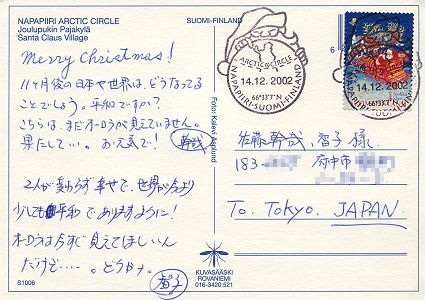 NAPAPIIRI ARCTIC CIRCLE
Joulupukin Pajakylä
Santa Claus Village
SUOMI-FINLAND
Merry Christmas!
11ヶ月後の日本や世界は、どうなってる
ことでしょう。平和ですか?
こちらは、まだオーロラが見えていません。
果たして…。お元気で!
幹哉
2人が変わらず幸せで、世界が今より
少しでも平和でありますように!
オーロラは今すぐ見えてほしいん
だけど…。どうかナ。
智子
S1006
Photo: Kalevi
KUVASÄÄSKI
ROVANIEMI
016-3420 521
6
ARCTIC CIRCLE
14.12.2002
66°33'7"N
NAPAPIIRI SUOMI-FINLAND
14.12.2002
66°33'7"N
佐藤幹哉、智子様
183-
府中市
To. Tokyo. JAPAN.